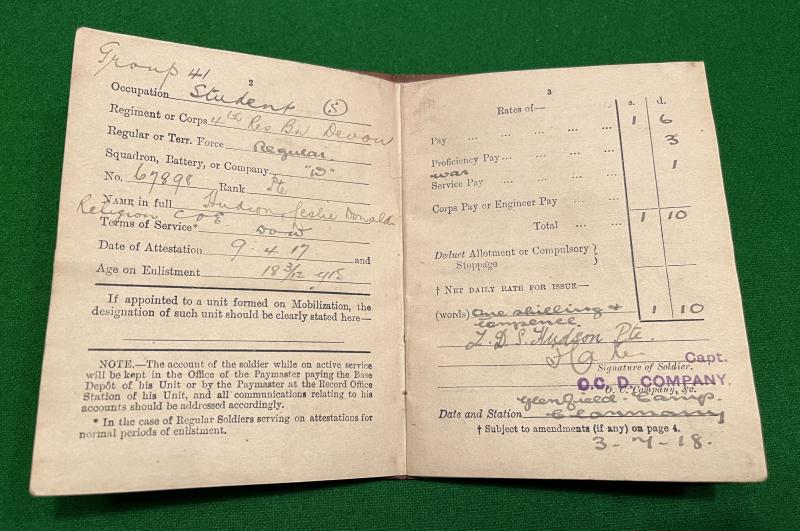 Group 41
2
Occupation Student (S)
Regiment or Corps 4th Res Bn Devon
Regular or Terr. Force Regular.
Squadron, Battery, or Company "D"
No. 67898 Rank Pte
NAME in full Hudson, Leslie Donald
Religion C of E
Terms of Service* DOW
Date of Attestation 9.4.17 and
Age on Enlistment 18 3/12 yrs
If appointed to a unit formed on Mobilization, the
designation of such unit should be clearly stated here—
NOTE.—The account of the soldier while on active service
will be kept in the Office of the Paymaster paying the Base
Depôt of his Unit or by the Paymaster at the Record Office
Station of his Unit, and all communications relating to his
accounts should be addressed accordingly.
* In the case of Regular Soldiers serving on attestations for
normal periods of enlistment.
3
Rates of— s. d.
Pay ... ... ... ... ... 1 6
Proficiency Pay ... ... ... 3
War
Service Pay ... ... ... 1
Corps Pay or Engineer Pay ...
Total ... ... 1 10
Deduct Allotment or Compulsory }
Stoppage }
† NET DAILY RATE FOR ISSUE— 1 10
(words) One shilling &
tenpence
L. D. S. Hudson Pte.
Signature of Soldier.
Capt.
O.C. D. COMPANY.
O. C. Company, &c.
Date and Station Glenfield Camp
† Subject to amendments (if any) on page 4.
3-7-18.